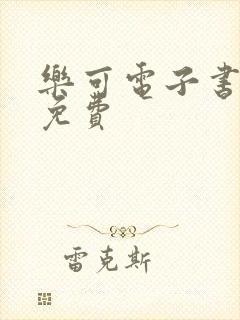 樂可電子書
免費
雷克斯